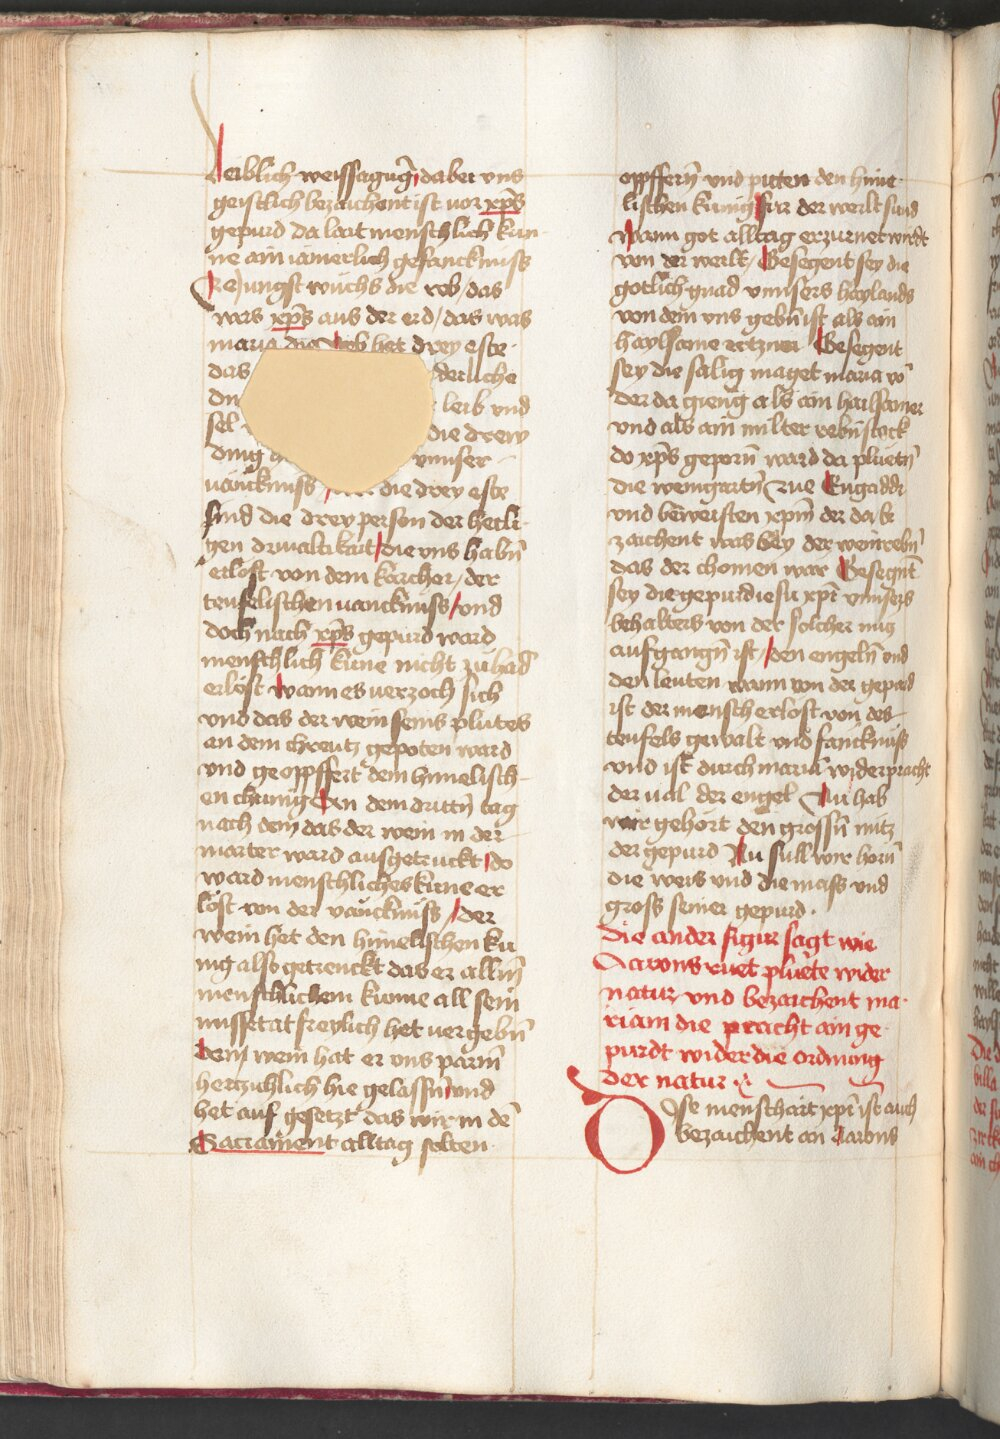 leiblich weissagūg dabei vns
geistlich bezaichent ist vor xp̄s
gepurd da lait menschlich kun-
ne ain iamerlich gefanckniss
Ze iungst wuchs die reb / das
was xp̄s aus der erd / das was
maria die reb het drey este
das der liche
du leib und
sel die drew
ding vnnser
uanckniss die drey este
sind die drey person der heili-
gen drivaltikait / die uns habn̄
erlost von dem karcher / der
teufelischen uanckniss / vnd
doch nach xp̄s gepurd ward
menschlich kune nicht zu had
erlost wann es uerzoch sich
vnd das der wein seins plutes
an dem chreutz gepoten ward
vnd geopffert dem himelisch-
en chunig An dem drittn̄ tag
nach dem das der wein in der
marter ward ausgetruckt / do
ward menschliches kune er
lost von der vanckniss / der
wein het den himelischen ku
nig also getrenckt das er allm̄
menschlichem kunne all sein
missetat freylich het uergebn̄
Dem wein hat er uns parm̄
hertzichlich hie gelassn̄ und
het auf gesetzt das wir in dē
Sacrament alltag solten
opffern̄ vnd piten den hime-
lischen kunig fur der werlt sund
wann got alltag erzurnet wirdt
von der werlt / Gesegent sey die
gotlich gnad vnnsers haylands
von dem uns gebn̄ ist als ain
haylsame ertzney Gesegent
sey die salig maget maria vō
der da gieng als ain hailsamer
vnd als ain milter rebnstock
do xp̄s geporn̄ ward da pluetn̄
die weingartn̄ zue Engaddi
vnd beweisten xp̄m der da be
zaichent was bey der weinrebn̄
das der chomen war Gesegn̄t
sey die gepurd iesu xp̄i vnnsers
behalters von der solcher nuz
aufgangn̄ ist / den engeln̄ vnd
den leuten wann von der gepurd
ist der mensch erlost von des
teufels gewalt vnd fanckniss
vnd ist durch maria widerpracht
der ual der engel Nu hab
wir gehort den grossn̄ nutz
der gepurd Nu sull wir horn̄
die weis vnd die mass vnd
gross seiner gepurd .
Die ander figur sagt wie
Aarons ruet pluete wider
natur vnd bezaichent ma-
riam die pracht ain ge-
purdt wider die ordnung
der natur
Dise menschait xp̄i ist auch
bezaichent an Aarons